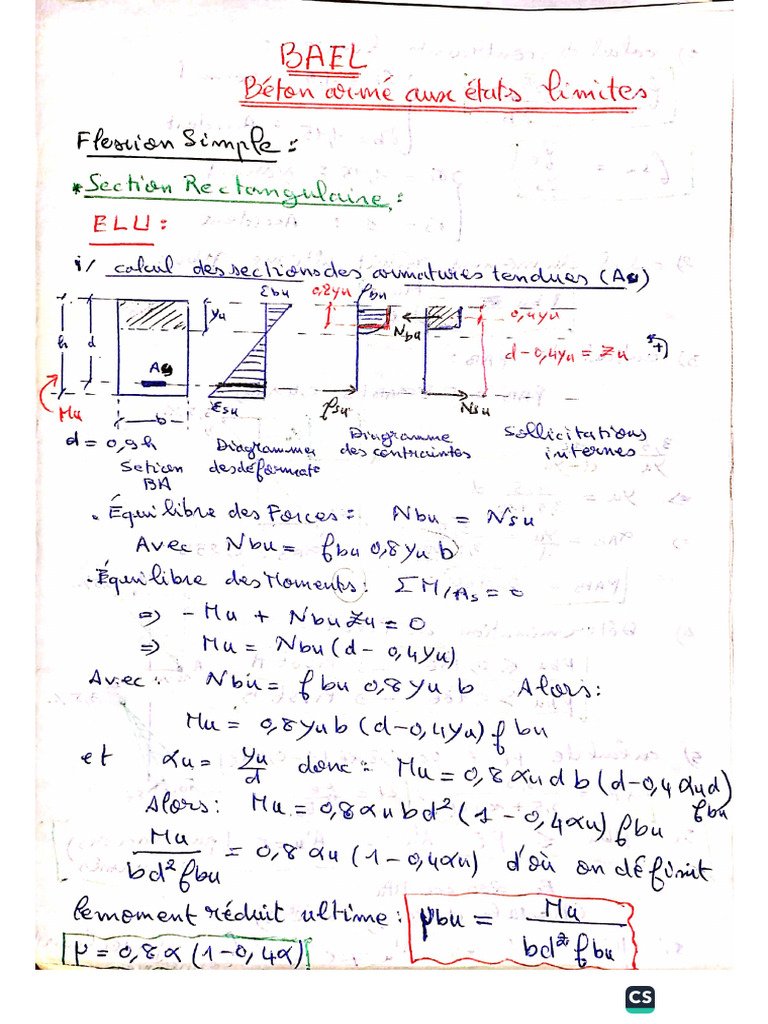 BAEL
Béton armé aux états limites
Flexion Simple :
* Section Rectangulaire :
ELU :
i/ calcul des sections des armatures tendues (As)
εbu 0,8yu fbu
yu Nbu 0,4yu
h d d-0,4yu = Zu +)
As
Mu b εsu fsu Nsu
d = 0,9h Diagrammes Diagramme Sollicitations
Setion des déformat° des contraintes internes
BA
. Équilibre des Forces : Nbu = Nsu
Avec Nbu = fbu 0,8yu b
. Équilibre des Moments : ΣM/As = 0
⇒ - Mu + Nbu Zu = 0
⇒ Mu = Nbu (d - 0,4yu)
Avec : Nbu = fbu 0,8yu b Alors :
Mu = 0,8yu b (d-0,4yu) fbu
et αu = yu/d donc : Mu = 0,8 αu d b (d-0,4 αu d) fbu
Alors : Mu = 0,8 αu bd² (1 - 0,4αu) fbu
Mu/bd² fbu = 0,8 αu (1-0,4αu) d'où on définit
le moment réduit ultime : μbu = Mu/bd² fbu
μ = 0,8 α (1-0,4α)
CS